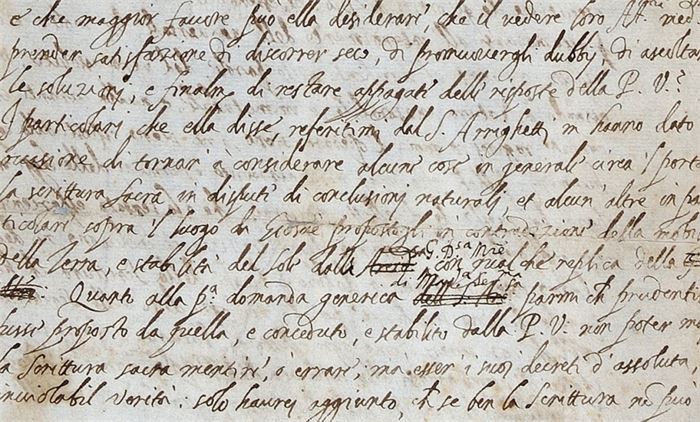 e che maggior favore può ella desiderare, che il vedere Loro Alt.ze med
prender satisfazione di discorrer seco, di promuovergli dubbij, di ascolta
le soluzioni, e finalm.te di restare appagati delle risposte della P. V.?
I particolari che ella disse, referitimi dal S. Arrighetti m hanno dato
casione di tornar' à considerare alcune cose in generale circa 'l port
la scrittura sacra in dispute di conclusioni naturali, et alcun' altre in pa
ticolare sopra 'l luogo di Giosuè propostogli in contradizione della mobi
della Terra, e stabilità del Sole dalla G. D.sa M.re con qualche replica della
Quanto alla p.a domanda generica di Mad.a Ser.ma parmi ch prudenti
fusse proposto da quella, e conceduto, e stabilito dalla P. V. non poter m
la scrittura sacra mentire, ò errare, ma esser i suoi decreti d'assoluta,
inviolabil verità: solo haurei aggiunto, ch se ben la Scrittura nō può